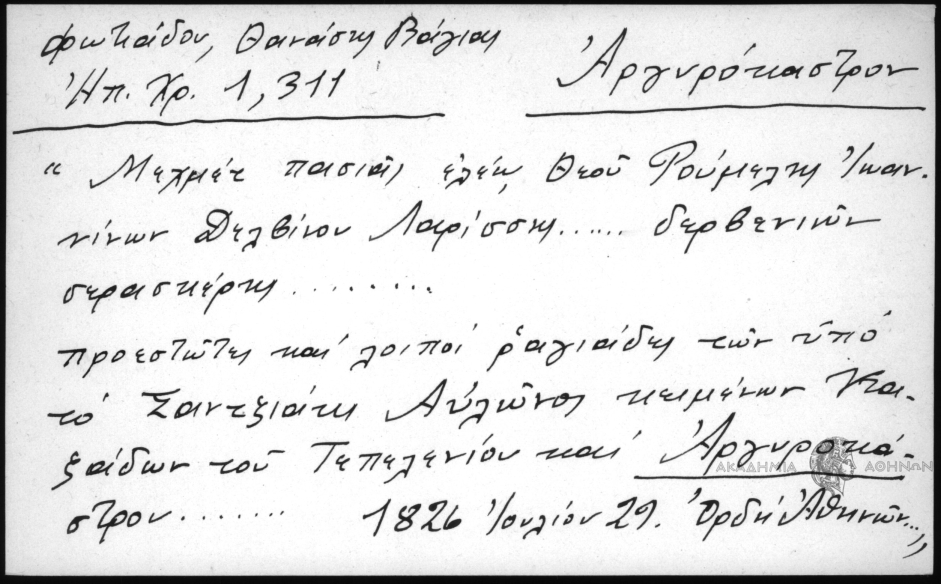 Φωτιάδου, Θανάσης Βάγιας
Ἀργυρόκαστρον
Ἠπ. Χρ. 1, 311
" Μεχμέτ πασιᾶς ἐλέῳ Θεοῦ Ρούμελης Ἰωαν-
νίνων Δελβίνου Λαρίσσης...... δερβενιῶν
σερασκέρης .........
προεστῶτες καί λοιποί ραγιάδες τῶν ὑπό
τό Σαντζιάκι Αὐλῶνος κειμένων Κα-
ζάδων τοῦ Τεπελενίου καί Ἀργυροκά-
στρου........ 1826 Ἰουλίου 29. Ὀρδή Ἀθηνῶν..."
ΑΚΑΔΗΜΙΑ ΑΘΗΝΩΝ